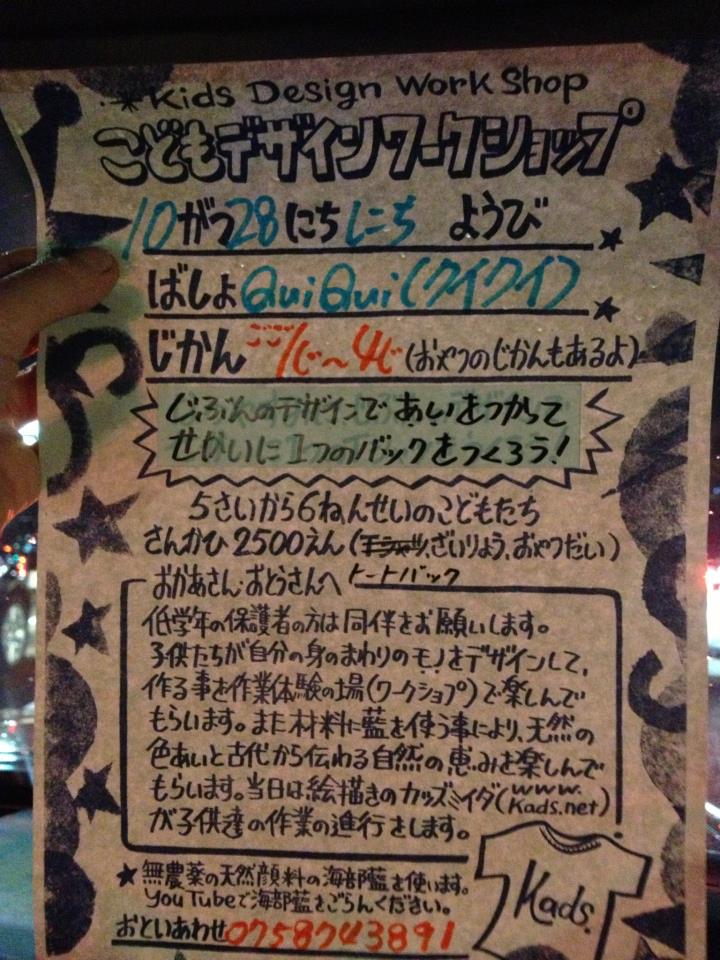 Kids Design Work Shop
こどもデザインワークショップ
10がつ28にちにちようび
ばしょQuiQui(クイクイ)
じかんごご1じ〜4じ(おやつのじかんもあるよ)
じぶんのデザインであいをつかって
せかいに1つのバックをつくろう!
5さいから6ねんせいのこどもたち
さんかひ2500えん(Tシャツ、ざいりょう、おやつだい)
おかあさん・おとうさんへ トートバック
低学年の保護者の方は同伴をお願いします。
子供たちが自分の身のまわりのモノをデザインして、
作る事を作業体験の場(ワークショプ)で楽しんで
もらいます。また材料に藍を使う事により、天然の
色あいと古代から伝わる自然の恵みを楽しんで
もらいます。当日は絵描きのカッズミイダ(www.
Kads.net)
が子供達の作業の進行をします。
Kads.
★無農薬の天然顔料の海部藍を使います。
YouTubeで海部藍をごらんください。
おといあわせ0758743891